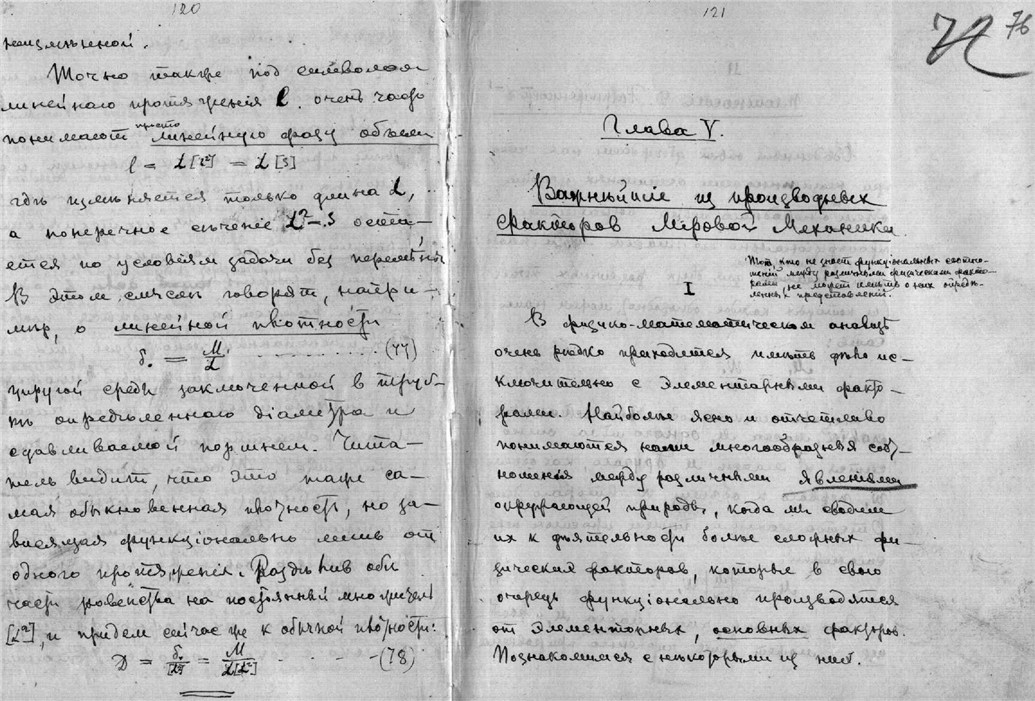 120
неизмѣнной.
Точно также под символом
линейнаго протяженія l очень часто
понимают просто линейную фазу объема
l = L[L²] = L[S]
гдѣ измѣняется только длина L,
а поперечное сѣченіе L² = S оста-
ется по условіям задачи без перемѣны
В этом смыслѣ говорят, напри-
мѣр, о линейной плотности
δ₀ = M/L ............ (77)
упругой среды заключенной в труб-
кѣ опредѣленнаго діаметра и
сдавливаемой поршнем. Чита-
тель видит, что это та же са-
мая обыкновенная плотность, но за-
висящая функціонально лишь от
одного протяженія. Раздѣлив обѣ
части равенства на постоянный множитель
[L²], и придем сейчас же к обычной плотности:
D = δ₀/[L²] = M/L[L²] - - - - (78)
121
76
Глава V.
Важнѣйшіе из производных
факторов Міровой Механики.
Тот, кто не знает функціональных соотно-
шеній между различными физическими факто-
рами, не может имѣть о них опредѣ-
ленных представленій.
I
В физико-математическом анализѣ
очень рѣдко приходится имѣть дѣло ис-
ключительно с элементарными факто-
рами. Наиболѣе ясно и отчетливо
понимаются нами многообразныя соот-
ношенія между различными явленіями
окружающей природы, когда мы сводим
их к дѣятельности болѣе сложных фи-
зических факторов, которые в свою
очередь функціонально производятся
от элементарных, основных факторов.
Познакомимся с нѣкоторыми из них.